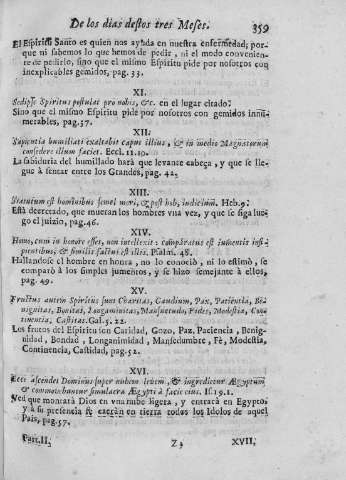 De los dias destos tres Meses. 359
El Espiritu Santo es quien nos ayuda en nuestra enfermedad; por-
que ni sabemos lo que hemos de pedir, ni el modo convenien-
te de pedirlo, sino que el mismo Espiritu pide por nosotros con
inexplicables gemidos, pag. 33.
XI.
Sedipse Spiritus postulat pro nobis, &c. en el lugar citado.
Sino que el mismo Espiritu pide por nosotros con gemidos innu-
merables, pag. 37.
XII.
Sapientia humiliati exaltabit caput illius, & in medio Magnatorum
consedere illum faciet. Eccl. 11. 10.
La sabiduria del humillado harà que levante cabeça, y que se lle-
gue à sentar entre los Grandes, pag. 42.
XIII.
Statutum est hominibus semel mori, & post hoc, iudicium. Heb. 9.
Està decretado, que mueran los hombres vna vez, y que se siga lue-
go el juizio, pag. 46.
XIV.
Homo, cum in honore esset, non intellexit: comparatus est iumentis insi-
pientibus, & similis factus est illis. Psalm. 48.
Hallandose el hombre en honra, no lo conociò, ni lo estimò, se
comparò à los simples jumentos, y se hizo semejante à ellos,
pag. 49.
XV.
Fructus autem Spiritus sunt Charitas, Gaudium, Pax, Patientia, Be-
nignitas, Bonitas, Longanimitas, Mansuetudo, Fides, Modestia, Con-
tinentia, Castitas. Gal. 5. 22.
Los frutos del Espiritu son Caridad, Gozo, Paz, Paciencia, Benig-
nidad, Bondad, Longanimidad, Mansedumbre, Fè, Modestia,
Continencia, Castidad, pag. 52.
XVI.
Ecce ascendet Dominus super nubem levem, & ingredietur Ægyptum
& commovebuntur simulacra Ægypti à facie eius. Is. 19. 1.
Ved que montarà Dios en vna nube ligera, y entrarà en Egypto,
y à su presencia se caeràn en tierra todos los Idolos de aquel
Pais, pag. 57.
Part. II. Z 3 XVII.